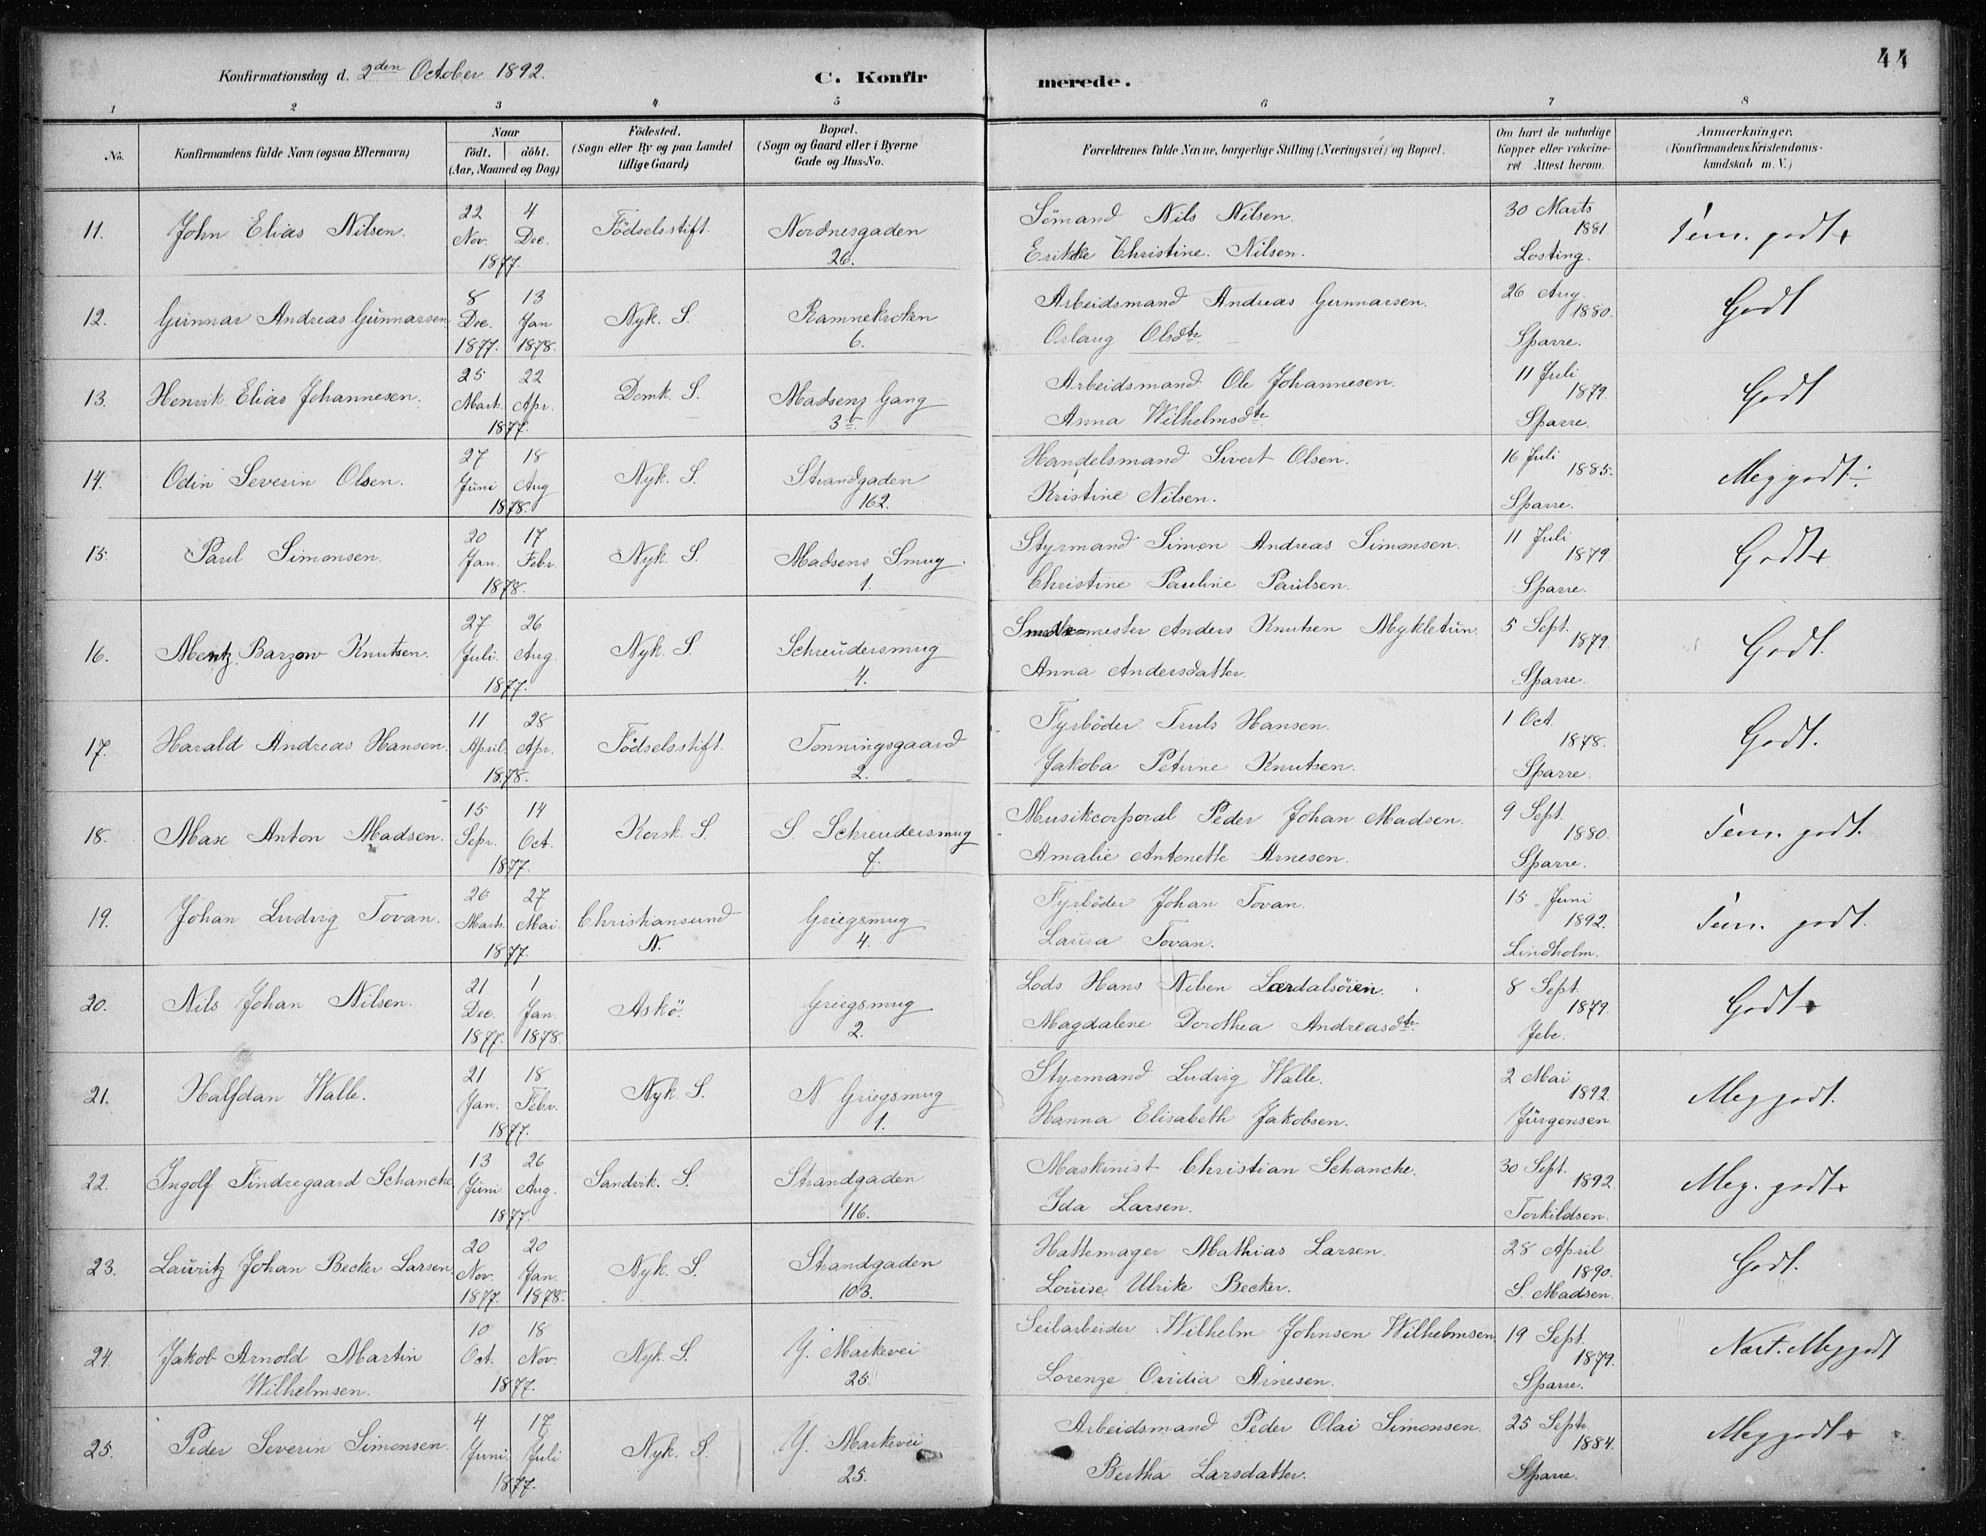 44
Konfirmationsdag d. 2den October 1892.
C. Konfirmerede.
1 2 3 4 5 6 7 8
No.
Konfirmandens fulde Navn (ogsaa Efternavn)
Naar
födt. döbt.
(Aar, Maaned og Dag)
Födested.
(Sogn eller By og paa Landet
tillige Gaard)
Bopæl.
(Sogn og Gaard eller i Byerne
Gade og Hus-No.
Forældrenes fulde Navne, borgerlige Stilling (Næringsvei) og Bopæl.
Om havt de naturlige
Kopper eller vakcine-
ret. Attest herom.
Anmærkninger.
(Konfirmandens Kristendoms-
kundskab m. V.)
11. John Elias Nilsen. 22 Nov. 4 Dec. 1877. Födselsstift. Nordnesgaden 26.
Sömand Nils Nilsen.
Erikke Christine Nilsen.
30 Marts 1881 Losting. Tem. godt+
12. Gunnar Andreas Gunnarsen 8 Dec. 1877. 13 Jan 1878. Nyk. S. Ramnekroken 6.
Arbeidsmand Andreas Gunnarsen.
Orlaug Olsdtr
26 Aug. 1880. Sparre. Godt
13. Henrik Elias Johannesen. 25 Mark. 22 Apr. 1877. Domk. S. Madsens Gang 3b.
Arbeidsmand Ole Johannesen.
Anna Wilhelmsdtr
11 Juli 1879. Sparre. Godt
14. Odin Severin Olsen. 27 Juni 18 Aug 1878. Nyk. S. Strandgaden 162.
Handelsmand Sivert Olsen.
Kristine Nilsen.
16 Juli 1885. Sparre. Meg godt÷
15. Paul Simonsen. 20 Jan. 17 Febr. 1878. Nyk. S. Madsens Smug 1.
Styrmand Simon Andreas Simonsen.
Christine Pauline Paulsen.
11 Juli 1879. Sparre. Godt+
16. Mentz Barzow Knutsen. 27 Juli. 26 Aug. 1877. Nyk. S. Schreudersmug 4.
Smedemester Anders Knutsen Mykletun.
Anna Andersdatter.
5 Sept. 1879. Sparre. Godt.
17. Harald Andreas Hansen. 11 April. 28 Apr. 1878. Födselsstift. Tonningsgaard 2.
Fyrböder Truls Hansen.
Jakoba Petrine Knutsen.
1 Oct. 1878. Sparre. Godt.
18. Max Anton Madsen. 15 Sepr. 14 Oct. 1877. Korsk. S. S. Schreudersmug 7.
Musikcorporal Peder Johan Madsen.
Amalie Antonette Arnesen.
9 Sept. 1880. Sparre. Tem. godt.
19. Johan Ludvig Tovan. 26 Mark. 27 Mai. 1877. Christiansund N. Griegsmug 4.
Fyrböder Johan Tovan.
Laura Tovan.
15 Juni 1892. Lindholm. Tem. godt.
20. Nils Johan Nilsen. 21 Dec. 1877. 1 Jan. 1878. Askö. Griegsmug 2.
Lods Hans Nilsen Lærdalsören.
Magdalene Dorothea Andreasdtr.
8 Sept. 1879. Jebe. Godt+
21. Halfdan Walle. 21 Jan. 18 Febr. 1877. Nyk. S. N Griegsmug 1.
Styrmand Ludvig Walle.
Hanna Elisabeth Jakobsen.
2 Mai 1892. Jürgensen Meg godt.
22. Ingolf Findregaard Schancke 13 Juni 26 Aug. 1877. Sandvik. S. Strandgaden 116.
Maskinist Christian Schancke.
Ida Larsen.
30 Sept. 1892. Torkildsen. Meg. godt+
23. Lauritz Johan Becker Larsen. 20 Nov. 1877. 20 Jan. 1878. Nyk. S. Strandgaden 103.
Hattemager Mathias Larsen.
Louise Ulrike Becker.
28 April 1890. S. Madsen. Godt.
24. Jakob Arnold Martin Wilhelmsen. 10 Oct. 18 Nov. 1877. Nyk. S. Y. Markevei 25.
Seilarbeider Wilhelm Johnsen Wilhelmsen
Lorenze Ovidia Arnesen.
19 Sept. 1879. Sparre. Næst. Meg godt
25. Peder Severin Simonsen. 4 Juni. 17 Juli 1877. Nyk. S. Y. Markevei 25.
Arbeidsmand Peder Olai Simonsen.
Bertha Larsdatter.
25 Sept. 1884. Sparre. Meg godt+